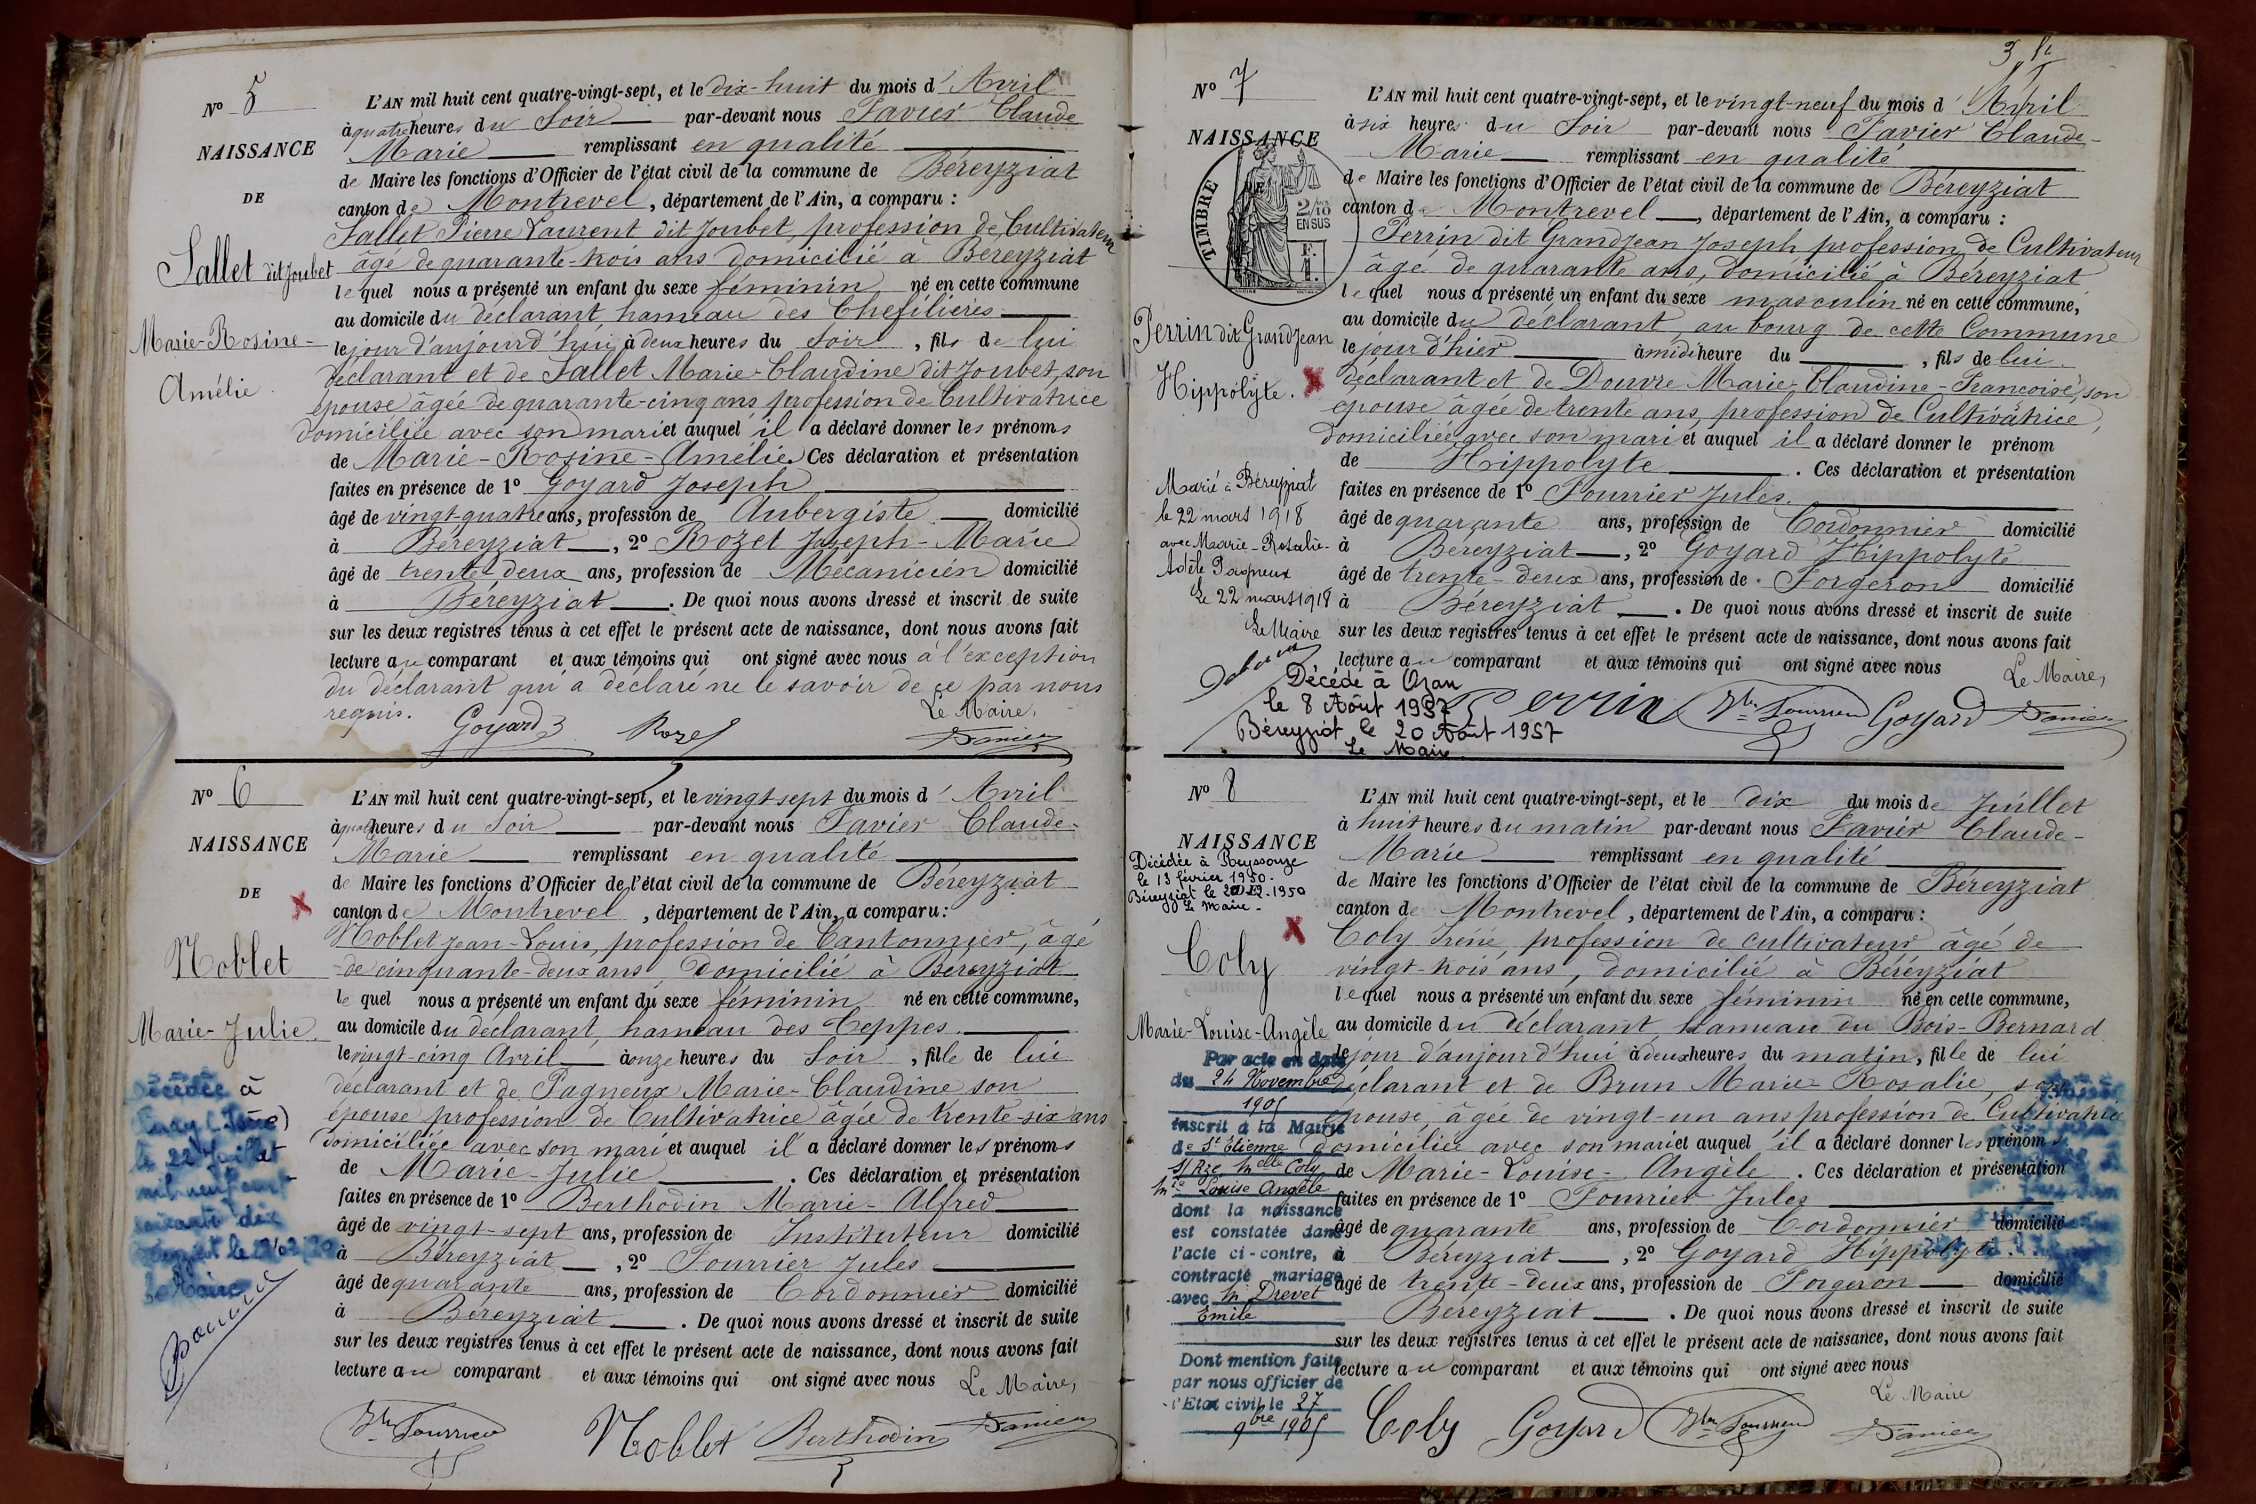 Nº 5
NAISSANCE
DE
Sallet dit Joubet
Marie-Rosine-
Amélie
L'AN mil huit cent quatre-vingt-sept, et le dix-huit du mois d'Avril
à quatre heures du Soir par-devant nous Favier Claude
Marie remplissant en qualité
de Maire les fonctions d'Officier de l'état civil de la commune de Béreyziat
canton de Montrevel, département de l'Ain, a comparu :
Sallet Pierre Laurent dit Joubet, profession de Cultivateur
âgé de quarante-trois ans domicilié à Béreyziat
lequel nous a présenté un enfant du sexe féminin né en cette commune
au domicile du déclarant hameau des Chefilières
le jour d'aujourd'hui à deux heures du Soir, fils de lui
déclarant et de Sallet Marie-Claudine dit Joubet, son
épouse âgée de quarante-cinq ans profession de Cultivatrice
domiciliée avec son mari et auquel il a déclaré donner les prénoms
de Marie-Rosine-Amélie. Ces déclaration et présentation
faites en présence de 1º Goyard Joseph
âgé de vingt-quatre ans, profession de Aubergiste domicilié
à Béreyziat, 2º Rozet Joseph-Marie
âgé de trente-deux ans, profession de Mécanicien domicilié
à Béreyziat. De quoi nous avons dressé et inscrit de suite
sur les deux registres tenus à cet effet le présent acte de naissance, dont nous avons fait
lecture au comparant et aux témoins qui ont signé avec nous à l'exception
du déclarant qui a déclaré ne le savoir de ce par nous
requis.
Le Maire,
Goyard Rozet Favier
Nº 6
NAISSANCE
DE
Noblet
Marie-Julie
Décédée à
le 22 Juillet
mil neuf cent
soixante dix
Le Maire
L'AN mil huit cent quatre-vingt-sept, et le vingt sept du mois d'Avril
à quatre heures du Soir par-devant nous Favier Claude-
Marie remplissant en qualité
de Maire les fonctions d'Officier de l'état civil de la commune de Béreyziat
canton de Montrevel, département de l'Ain, a comparu :
Noblet Jean-Louis, profession de Cantonnier, âgé
de cinquante-deux ans, domicilié à Béreyziat
lequel nous a présenté un enfant du sexe féminin né en cette commune,
au domicile du déclarant, hameau des Teppes
le vingt-cinq Avril à onze heures du Soir, fille de lui
déclarant et de Pagneux Marie-Claudine son
épouse profession de Cultivatrice âgée de trente-six ans
domiciliée avec son mari et auquel il a déclaré donner les prénoms
de Marie-Julie. Ces déclaration et présentation
faites en présence de 1º Berthodin Marie-Alfred
âgé de vingt-sept ans, profession de Instituteur domicilié
à Béreyziat, 2º Fourrier Jules
âgé de quarante ans, profession de Cordonnier domicilié
à Béreyziat. De quoi nous avons dressé et inscrit de suite
sur les deux registres tenus à cet effet le présent acte de naissance, dont nous avons fait
lecture au comparant et aux témoins qui ont signé avec nous
Le Maire,
Fourrier Noblet Berthodin Favier
3
Nº 7
NAISSANCE
DE
TIMBRE
2/10
EN SUS
Perrin dit Grandjean
Hippolyte.
Marié à Béreyziat
le 22 mars 1918
avec Marie-Rosalie-
Adèle Pagneux
Le 22 mars 1918
Le Maire
Décédé à Ozan
le 8 Août 1957
Béreyziat le 20 Août 1957
Le Maire
L'AN mil huit cent quatre-vingt-sept, et le vingt-neuf du mois d'Avril
à six heures du Soir par-devant nous Favier Claude-
Marie remplissant en qualité
de Maire les fonctions d'Officier de l'état civil de la commune de Béreyziat
canton de Montrevel, département de l'Ain, a comparu :
Perrin dit Grandjean Joseph profession de Cultivateur
âgé de quarante ans, domicilié à Béreyziat
lequel nous a présenté un enfant du sexe masculin né en cette commune,
au domicile du déclarant, au bourg de cette Commune
le jour d'hier à midi heure du, fils de lui
déclarant et de Douvre Marie-Claudine-Françoise, son
épouse âgée de trente ans, profession de Cultivatrice,
domiciliée avec son mari et auquel il a déclaré donner le prénom
de Hippolyte. Ces déclaration et présentation
faites en présence de 1º Fourrier Jules.
âgé de quarante ans, profession de Cordonnier domicilié
à Béreyziat, 2º Goyard Hippolyte
âgé de trente-deux ans, profession de Forgeron domicilié
à Béreyziat. De quoi nous avons dressé et inscrit de suite
sur les deux registres tenus à cet effet le présent acte de naissance, dont nous avons fait
lecture au comparant et aux témoins qui ont signé avec nous
Le Maire,
Perrin Fourrier Goyard Favier
Nº 8
NAISSANCE
Décédée à Reyssouze
le 13 février 1950.
Béreyziat le
Le Maire
Coly
Marie-Louise-Angèle
Par acte en date
du 24 Novembre
1905
inscrit à la Mairie
de St Etienne
s/Rze Melle Coly
Mie Louise Angèle
dont la naissance
est constatée dans
l'acte ci-contre, a
contracté mariage
avec M Drevet
Emile
Dont mention faite
par nous officier de
l'Etat civil le 27
9bre 1905
L'AN mil huit cent quatre-vingt-sept, et le dix du mois de Juillet
à huit heures du matin par-devant nous Favier Claude-
Marie remplissant en qualité
de Maire les fonctions d'Officier de l'état civil de la commune de Béreyziat
canton de Montrevel, département de l'Ain, a comparu :
Coly Iréné, profession de cultivateur âgé de
vingt-trois ans, domicilié à Béréyziat
lequel nous a présenté un enfant du sexe féminin né en cette commune,
au domicile du déclarant, hameau du Bois-Bernard
le jour d'aujourd'hui à deux heures du matin, fille de lui
déclarant et de Brun Marie-Rosalie, son
épouse, âgée de vingt-un ans profession de Cultivatrice
domiciliée avec son mari et auquel il a déclaré donner les prénoms
de Marie-Louise-Angèle. Ces déclaration et présentation
faites en présence de 1º Fourrier Jules
âgé de quarante ans, profession de Cordonnier domicilié
à Béreyziat, 2º Goyard Hippolyte.
âgé de trente-deux ans, profession de Forgeron domicilié
Béreyziat. De quoi nous avons dressé et inscrit de suite
sur les deux registres tenus à cet effet le présent acte de naissance, dont nous avons fait
lecture au comparant et aux témoins qui ont signé avec nous
Le Maire
Coly Goyard Fourrier Favier